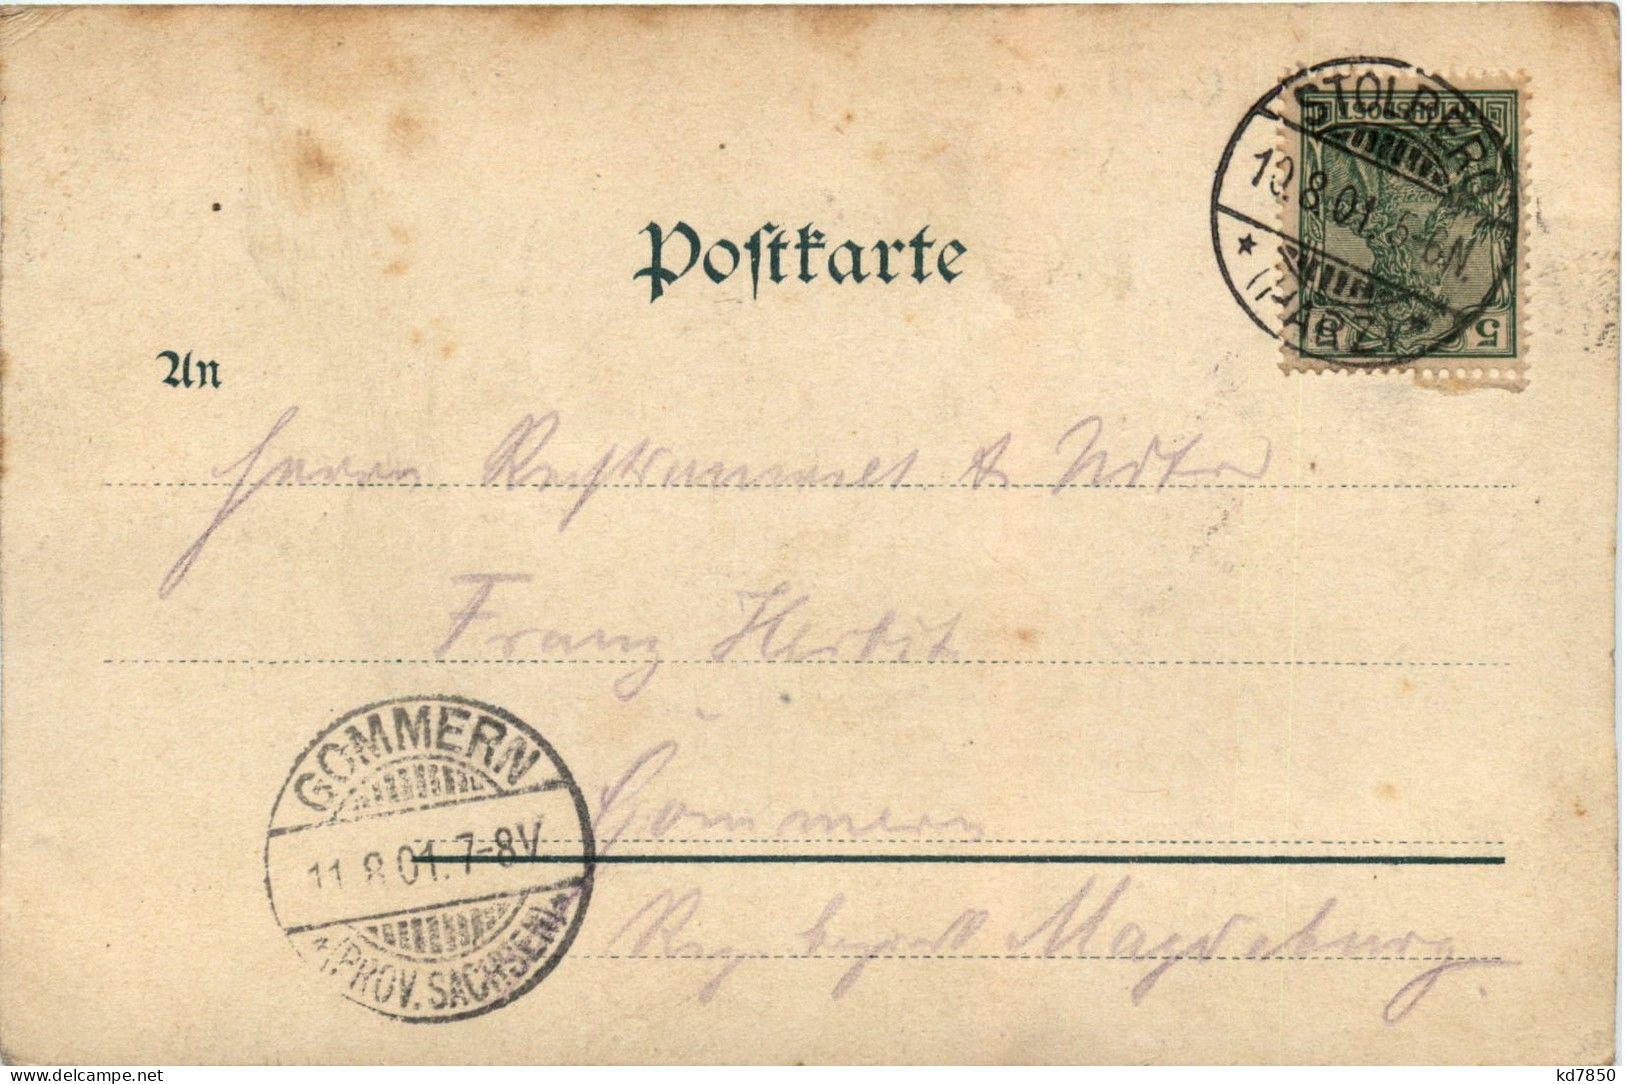 STOLBERG
10.8.01. 5-6N.
* (HARZ) *
REICHSPOST
5
Postkarte
An
Herrn Rechtsanwalt & Notar
Franz Herbst
Gommern
GOMMERN
11.8.01. 7-8V.
*(PROV. SACHSEN)*
Reg. bezirk Magdeburg.
kd7850